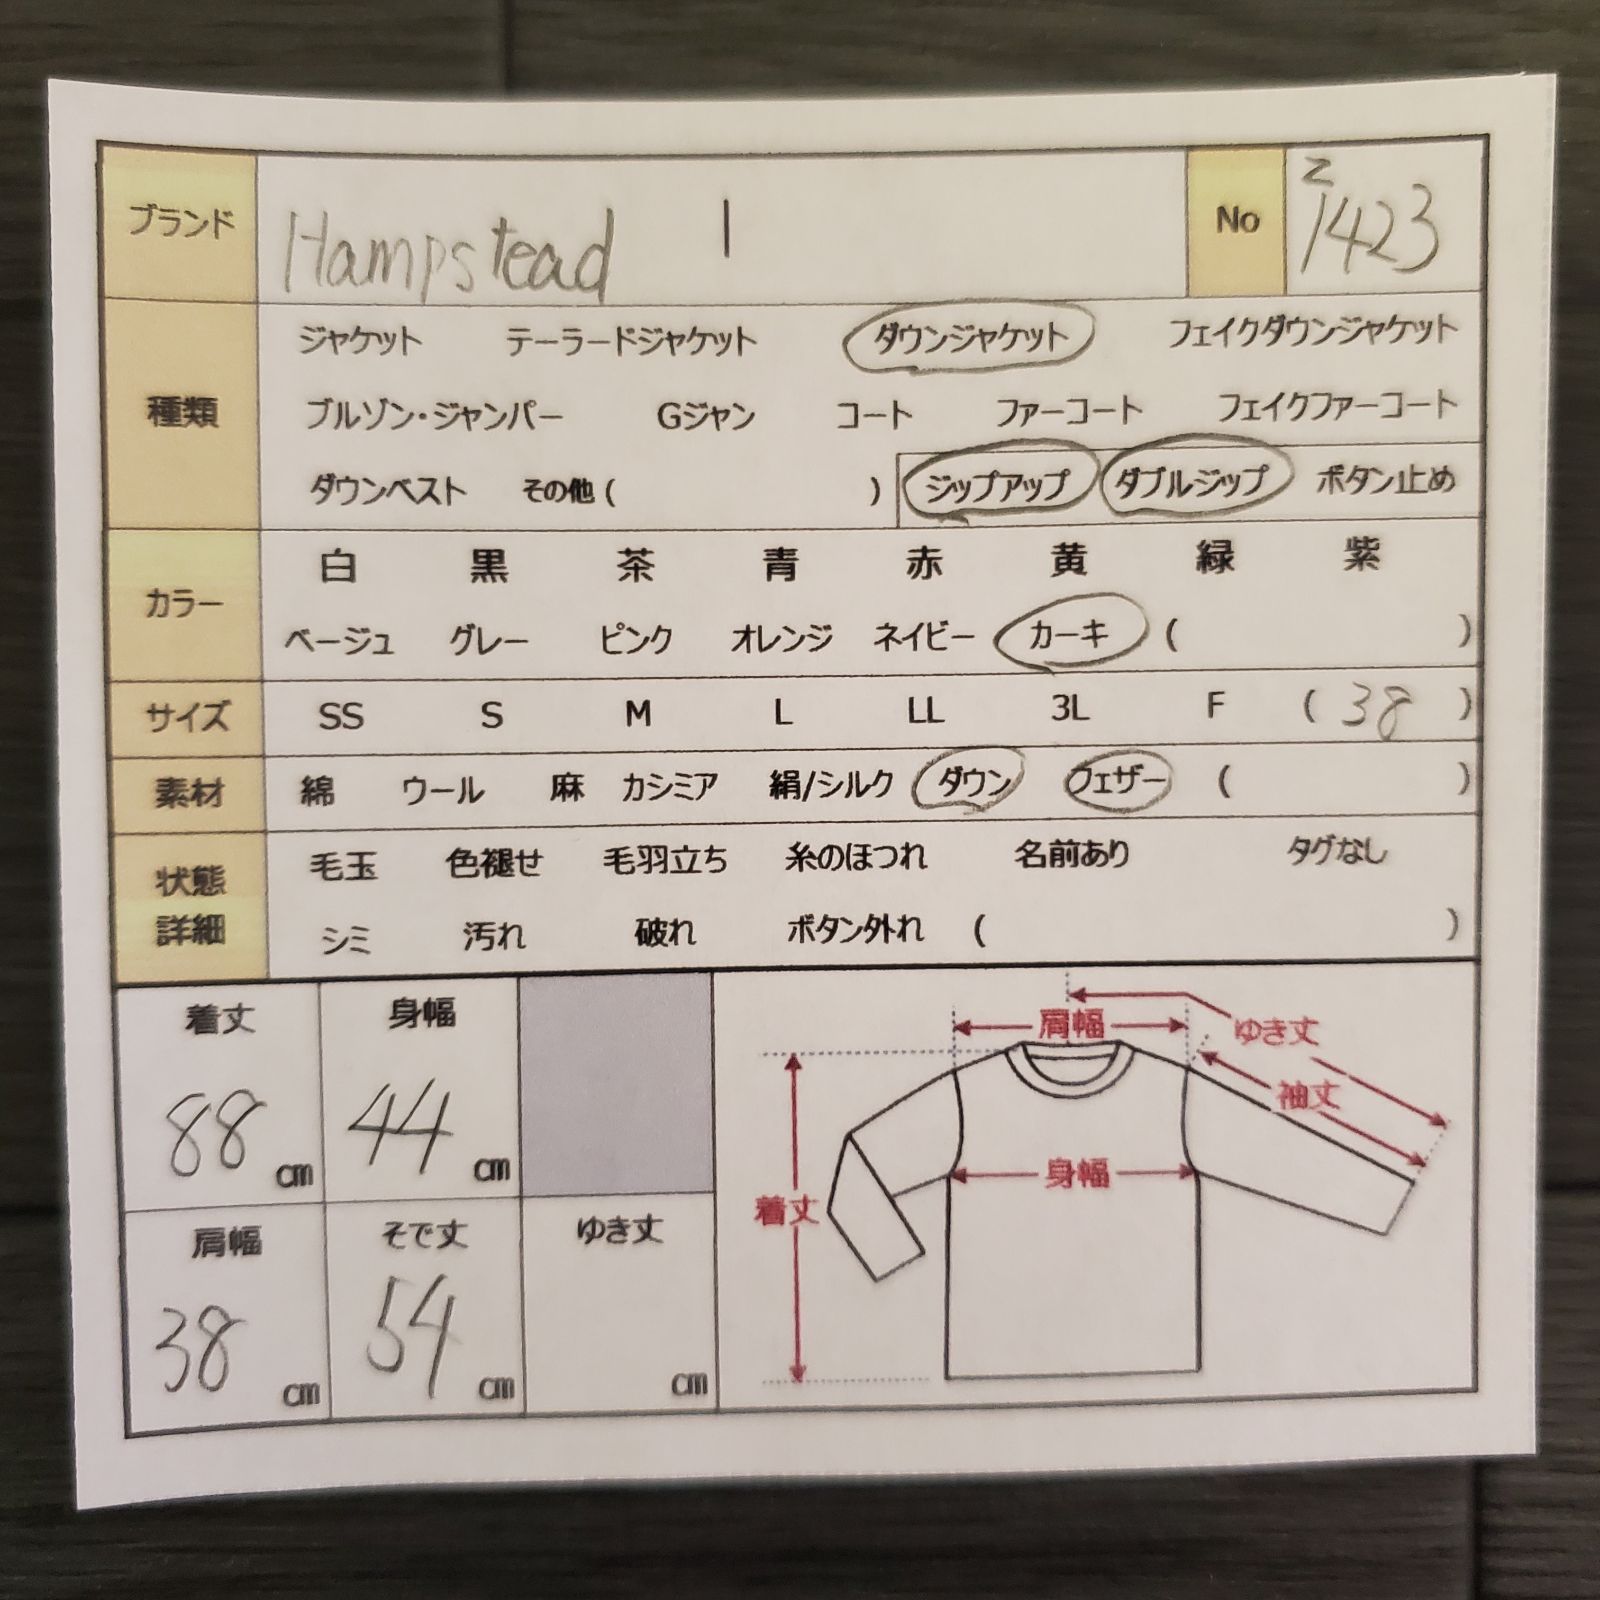 ブランド Hampstead 1 No z 1423
種類 ジャケット テーラードジャケット ダウンジャケット フェイクダウンジャケット
ブルゾン・ジャンパー Gジャン コート ファーコート フェイクファーコート
ダウンベスト その他 ( ) ジップアップ ダブルジップ ボタン止め
カラー 白 黒 茶 青 赤 黄 緑 紫
ベージュ グレー ピンク オレンジ ネイビー カーキ ( )
サイズ SS S M L LL 3L F ( 38 )
素材 綿 ウール 麻 カシミア 絹/シルク ダウン フェザー ( )
状態 毛玉 色褪せ 毛羽立ち 糸のほつれ 名前あり タグなし
詳細 シミ 汚れ 破れ ボタン外れ ( )
着丈 身幅
88 cm 44 cm
肩幅 そで丈 ゆき丈
38 cm 54 cm cm
肩幅 ゆき丈
袖丈
身幅
着丈